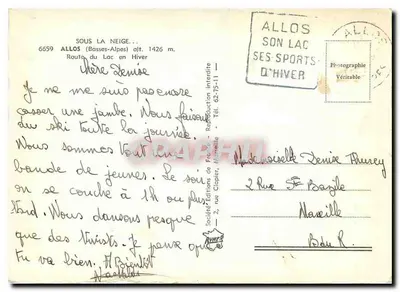 SOUS LA NEIGE...
6659 ALLOS (Basses-Alpes) alt. 1426 m.
Route du Lac en Hiver
Chère Denise
Je ne me suis pas encore
casser une jambe. Nous faisons
du ski toute la journée.
Nous sommes tout une
bande de jeunes. Le soir
on se couche à 1h ou plus
tard. Nous dansons presque
que des twists. Je pense que
tu va bien. A Bientôt
ALLOS
SON LAC
SES SPORTS
D'HIVER
ALLOS
Photographie
Véritable
Mademoiselle Denise
2 Rue Ste Bazile
Marseille
Bdu R.
Reproduction interdite
Tél. 62-75-11